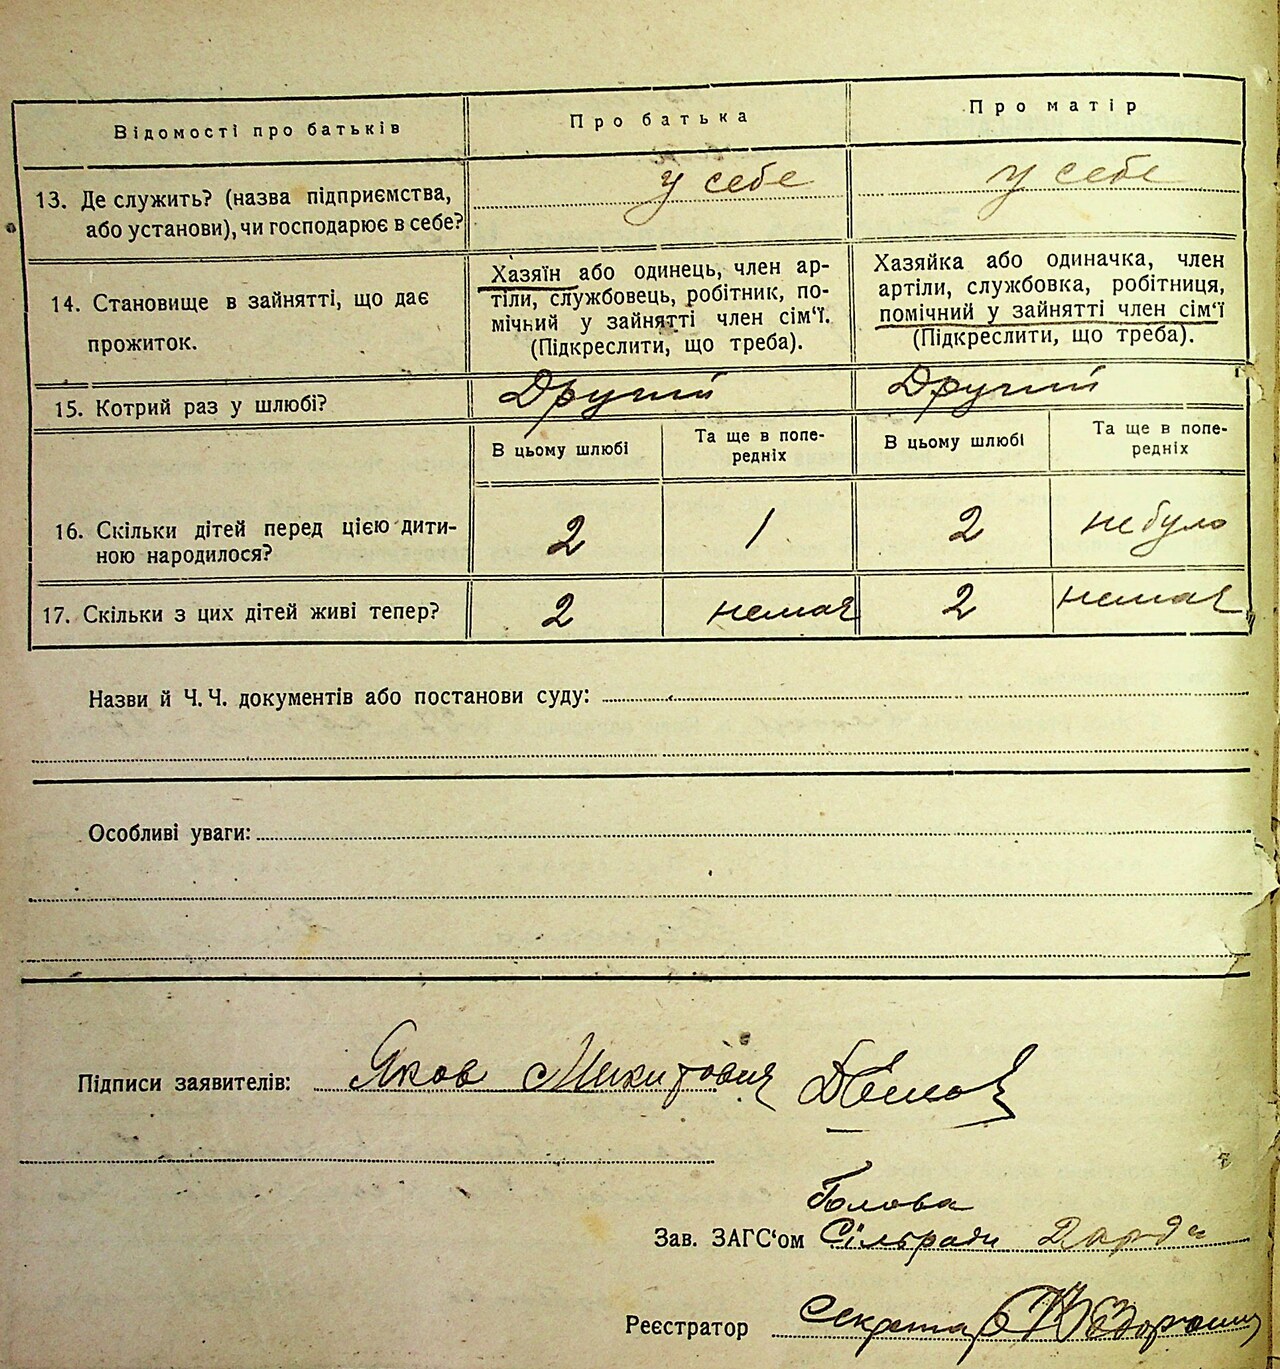 Відомості про батьків
Про батька
Про матір
13. Де служить? (назва підприємства,
або установи), чи господарює в себе?
у себе
у себе
14. Становище в зайнятті, що дає
прожиток.
Хазяїн або одинець, член ар-
тіли, службовець, робітник, по-
мічний у зайнятті член сім'ї.
(Підкреслити, що треба).
Хазяйка або одиначка, член
артіли, службовка, робітниця,
помічний у зайнятті член сім'ї
(Підкреслити, що треба).
15. Котрий раз у шлюбі?
Другий
Другий
В цьому шлюбі
Та ще в попе-
редніх
В цьому шлюбі
Та ще в попе-
редніх
16. Скільки дітей перед цією дити-
ною народилося?
2
1
2
небуло
17. Скільки з цих дітей живі тепер?
2
немає
2
немає
Назви й Ч. Ч. документів або постанови суду:
Особливі уваги:
Підписи заявителів: Яков Микитович
Голова
Зав. ЗАГС'ом Сільради
Реєстратор Секретар